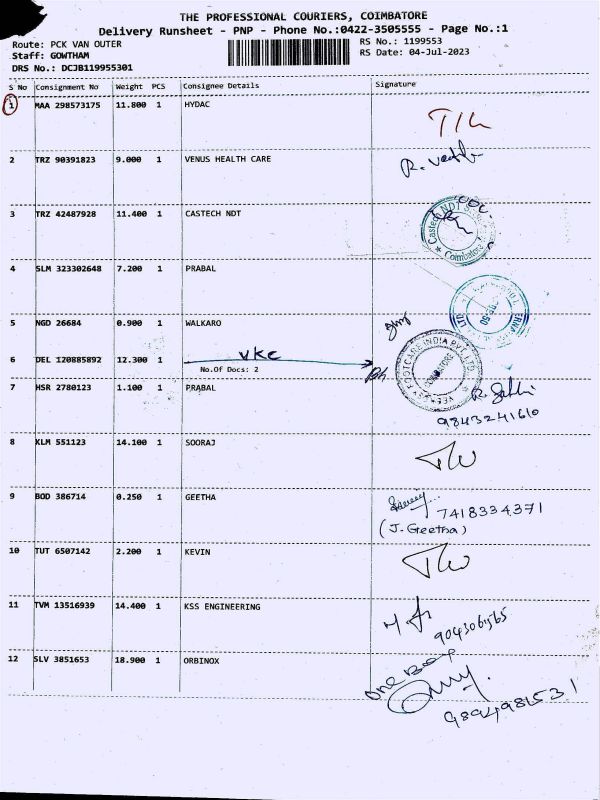 THE PROFESSIONAL COURIERS, COIMBATORE
Delivery Runsheet - PNP - Phone No.:0422-3505555 - Page No.:1
Route: PCK VAN OUTER
RS No.: 1199553
Staff: GOWTHAM
RS Date: 04-Jul-2023
DRS No.: DCJB119955301
S No Consignment No Weight PCS Consignee Details Signature
1 MAA 298573175 11.800 1 HYDAC
2 TRZ 90391823 9.000 1 VENUS HEALTH CARE
3 TRZ 42487928 11.400 1 CASTECH NDT
Castech NDT
Coimbatore
4 SLM 323302648 7.200 1 PRABAL
5 NGD 26684 0.900 1 WALKARO
6 DEL 120885892 12.300 1 VKC
No.Of Docs: 2
FOOTCARE INDIA PVT LTD
7 HSR 2780123 1.100 1 PRABAL
9843241660
8 KLM 551123 14.100 1 SOORAJ
9 BOD 386714 0.250 1 GEETHA
7418334371
(J. Geetha)
10 TUT 6507142 2.200 1 KEVIN
11 TVM 13516939 14.400 1 KSS ENGINEERING
12 SLV 3851653 18.900 1 ORBINOX
One Box